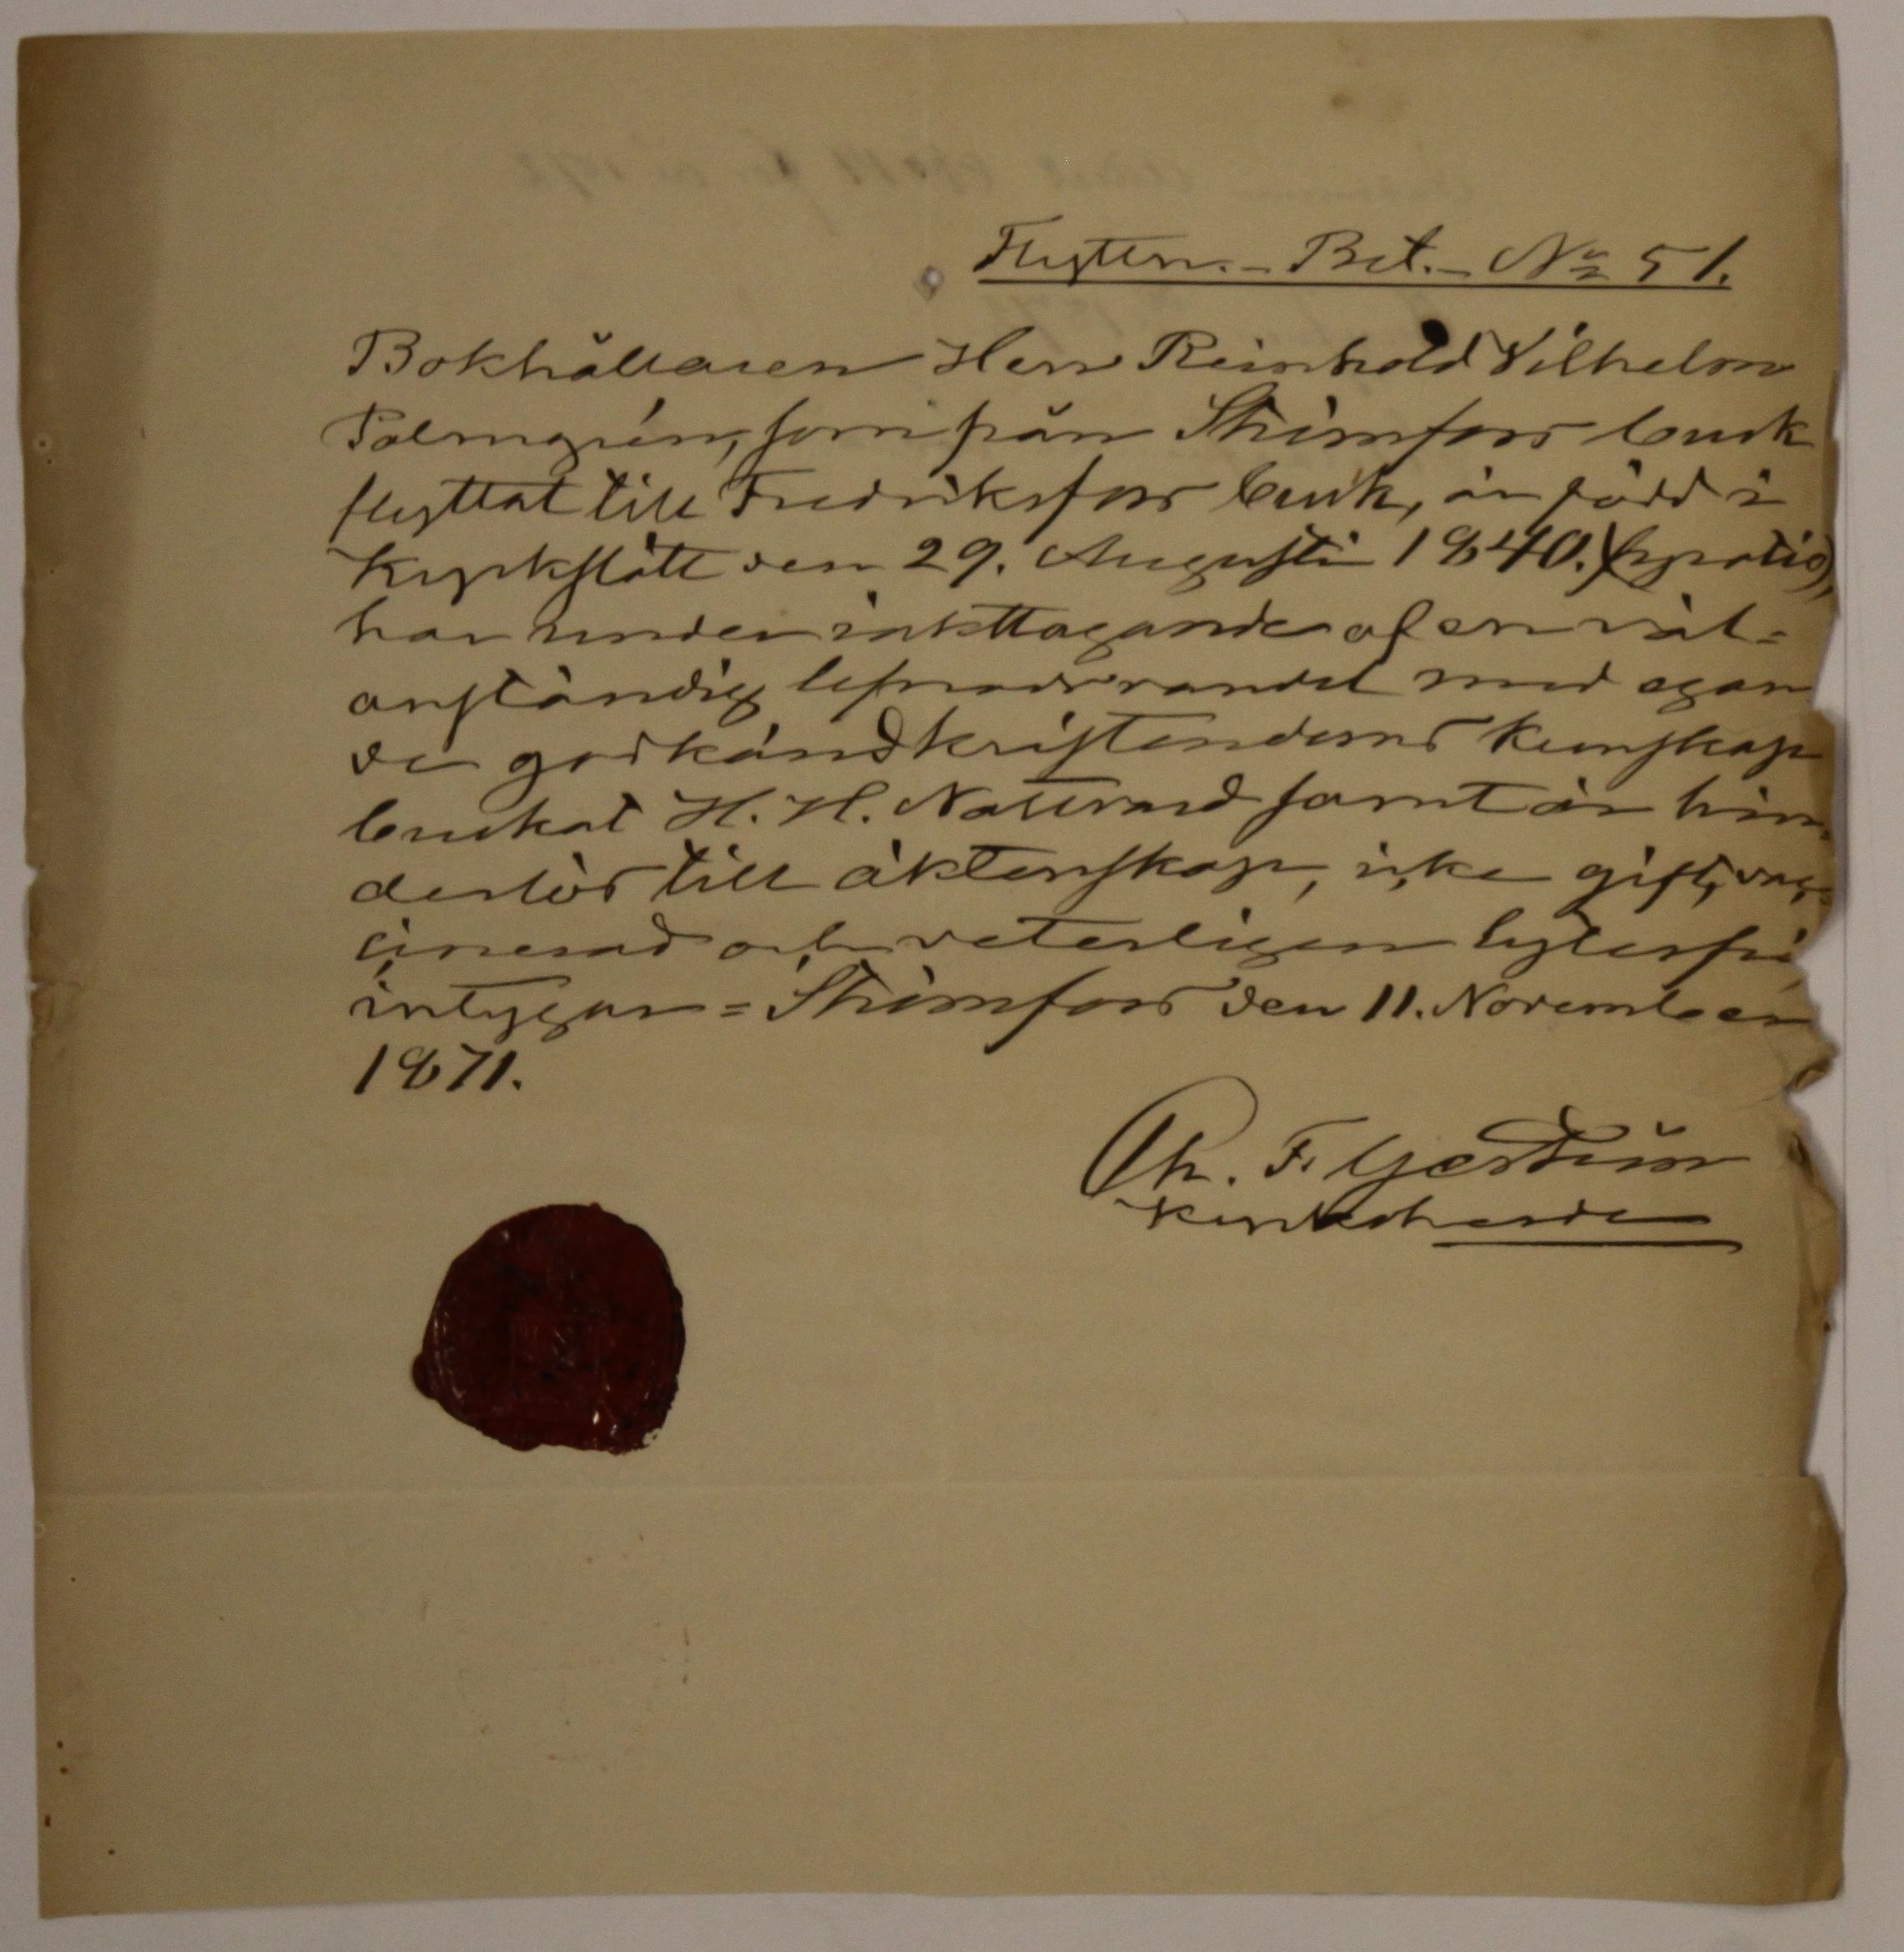 Flyttn.- Bet.- No 51.
Bokhållaren Herr Reinhold Vilhelm
Palmgrén, som från Strömfors bruk
flyttat till Fredriksfors bruk, är född i
Kyrkslätt den 29. Augusti 1840.
har under iakttagande af en väl=
anständig lefnadsvandel med egan
de godkänd kristendoms kunskap
brukat H. H. Nattvard samt är hin
derlös till äktenskap, icke gift, vac,
cinerad och veterligen lytesfri
intygar = Strömfors den 11. November
1871.
Th. F.
Kyrkoherde